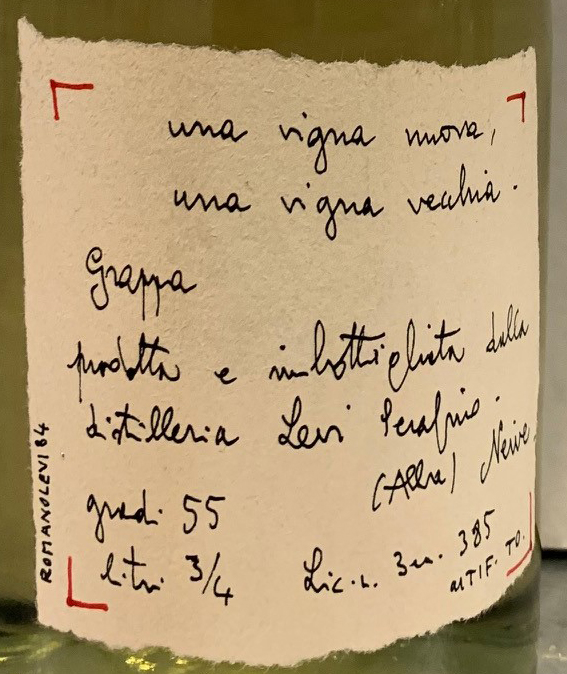 una vigna nuova,
una vigna vecchia.
Grappa
prodotta e imbottigliata dalla
distilleria Levi Serafino.
(Alba) Neive
gradi 55
litri 3/4
Lic. n. 3 385
UTIF. TO.
ROMANOLEVI84